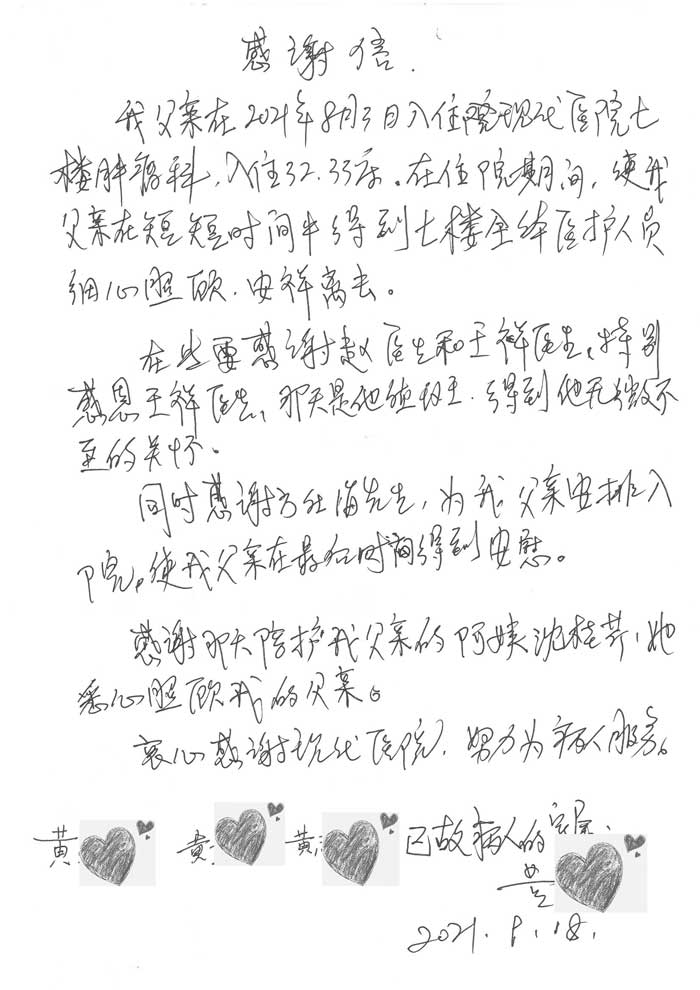 感谢信.
我父亲在2021年8月3日入住院现代医院七
楼肿瘤科,入住32.33床。在住院期间,使我
父亲在短短时间中得到七楼全体医护人员
细心照顾.安祥离去。
在此要感谢赵医生和王祥医生,特别
感恩王祥医生,那天是他值班.得到他无微不
至的关怀。
同时感谢方社海先生,为我父亲安排入
院,使我父亲在最后时间得到安慰。
感谢那天陪护我父亲的阿姨沈桂芳,她
悉心照顾我的父亲。
衷心感谢现代医院,努力为病人服务。
黄 黄 黄 已故病人的家属.
黄
2021.8.18.